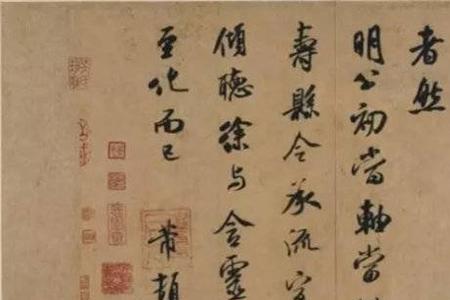 者然
明公初當軸當
壽縣令承流宣
傾聽徐與含靈
至化而已
芾頓